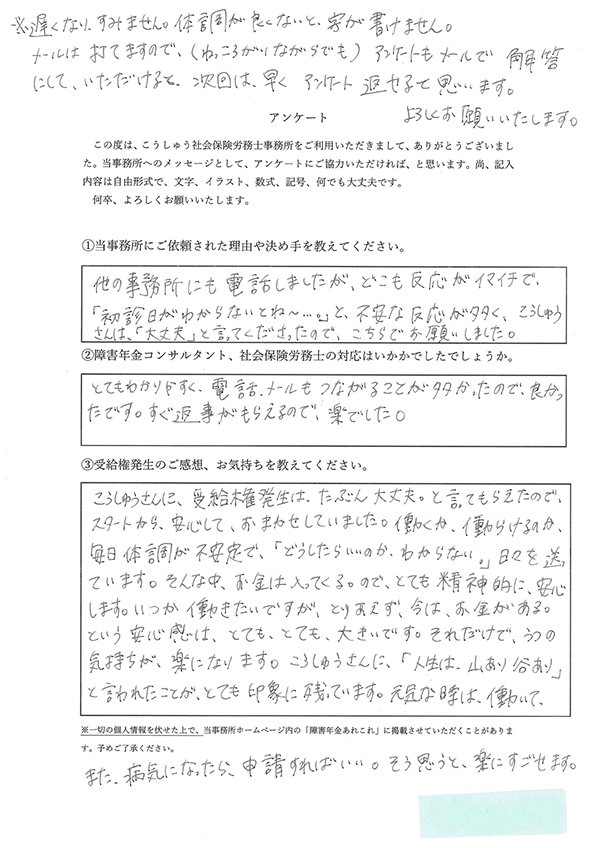 ※遅くなり、すみません。体調が良くないと、字が書けません。
メールは打てますので、(ねっころがりながらでも) アンケートもメールで 解答
にして、いただけると、次回は、早く アンケート 返せると思います。
よろしくお願いいたします。
アンケート
この度は、こうしゅう社会保険労務士事務所をご利用いただきまして、ありがとうございまし
た。当事務所へのメッセージとして、アンケートにご協力いただければ、と思います。尚、記入
内容は自由形式で、文字、イラスト、数式、記号、何でも大丈夫です。
何卒、よろしくお願いいたします。
①当事務所にご依頼された理由や決め手を教えてください。
他の事務所にも電話しましたが、どこも反応がイマイチで、
「初診日がわからないとね~…。」と、不安な反応が多く、こうしゅう
さんは、「大丈夫」と言ってくださったので、こちらでお願いしました。
②障害年金コンサルタント、社会保険労務士の対応はいかかでしたでしょうか。
とてもわかりやすく、電話、メールもつながることが多かったので、良かっ
たです。すぐ返事がもらえるので、楽でした。
③受給権発生のご感想、お気持ちを教えてください。
こうしゅうさんに、受給権発生は、たぶん大丈夫。と言ってもらえたので、
スタートから、安心して、おまかせしていました。働くか、働らけるのか、
毎日体調が不安定で、「どうしたらいいのか、わからない。」日々を送っ
ています。そんな中、お金は入ってくる。ので、とても精神的に、安心
します。いつか働きたいですが、とりあえず、今は、お金がある。
という安心感は、とても、とても、大きいです。それだけで、うつの
気持ちが、楽になります。こうしゅうさんに、「人生は、山あり谷あり」
と言われたことが、とても印象に残っています。元気な時は、働いて、
※一切の個人情報を伏せた上で、当事務所ホームページ内の「障害年金あれこれ」に掲載させていただくことがありま
す。予めご了承ください。
また、病気になったら、申請すればいい。そう思うと、楽にすごせます。